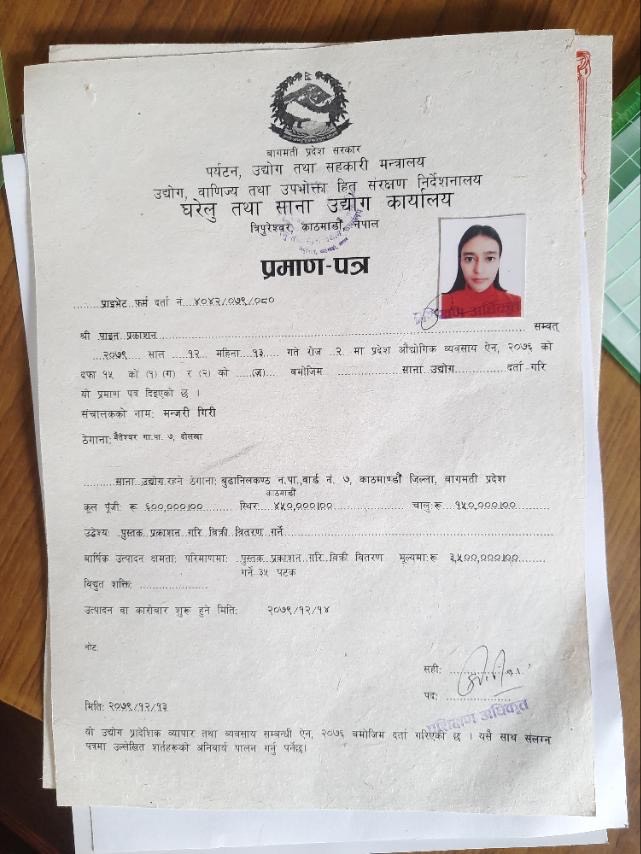 बागमती प्रदेश सरकार
पर्यटन, उद्योग तथा सहकारी मन्त्रालय
उद्योग, वाणिज्य तथा उपभोक्ता हित संरक्षण निर्देशनालय
घरेलु तथा साना उद्योग कार्यालय
त्रिपुरेश्वर, काठमाडौं, नेपाल
प्रमाण-पत्र
प्राइभेट फर्म दर्ता नं. ४०४२/०७९/०८०
श्री पाइन प्रकाशन सम्वत्
२०७९ साल १२ महिना १३ गते रोज २ मा प्रदेश औद्योगिक व्यवसाय ऐन, २०७६ को
दफा १५ को (१) (ग) र (२) को (ज) बमोजिम साना उद्योग दर्ता गरि
यो प्रमाण पत्र दिइएको छ ।
संचालकको नाम: मन्जरी गिरी
ठेगाना: बैतेश्वर गा.पा. ७, दोलखा
साना उद्योग रहने ठेगाना: बुढानिलकण्ठ न.पा.,वार्ड नं. ७, काठमाण्डौं जिल्ला, बागमती प्रदेश
काठमाडौं
कूल पूंजी: रू ६००,०००|०० स्थिर: ४५०,०००|०० चालु: रू १५०,०००|००
उद्देश्य: पुस्तक प्रकाशन गरि बिक्री वितरण गर्ने
बार्षिक उत्पादन क्षमता: परिमाणमा: पुस्तक प्रकाशन गरि बिक्री वितरण मूल्यमा: रू ३,५००,०००|००
गर्ने ३५ पटक
विद्युत शक्ति:
उत्पादन वा कारोबार शुरू हुने मिति: २०७९/१२/१४
नोट:
सही:
पद:
प्रशिक्षण अधिकृत
मिति: २०७९/१२/१३
यो उद्योग प्रादेशिक व्यापार तथा व्यवसाय सम्बन्धी ऐन, २०७६ बमोजिम दर्ता गरिएको छ । यसै साथ संलग्न
पत्रमा उल्लेखित शर्तहरूको अनिवार्य पालन गर्नु पर्नेछ।